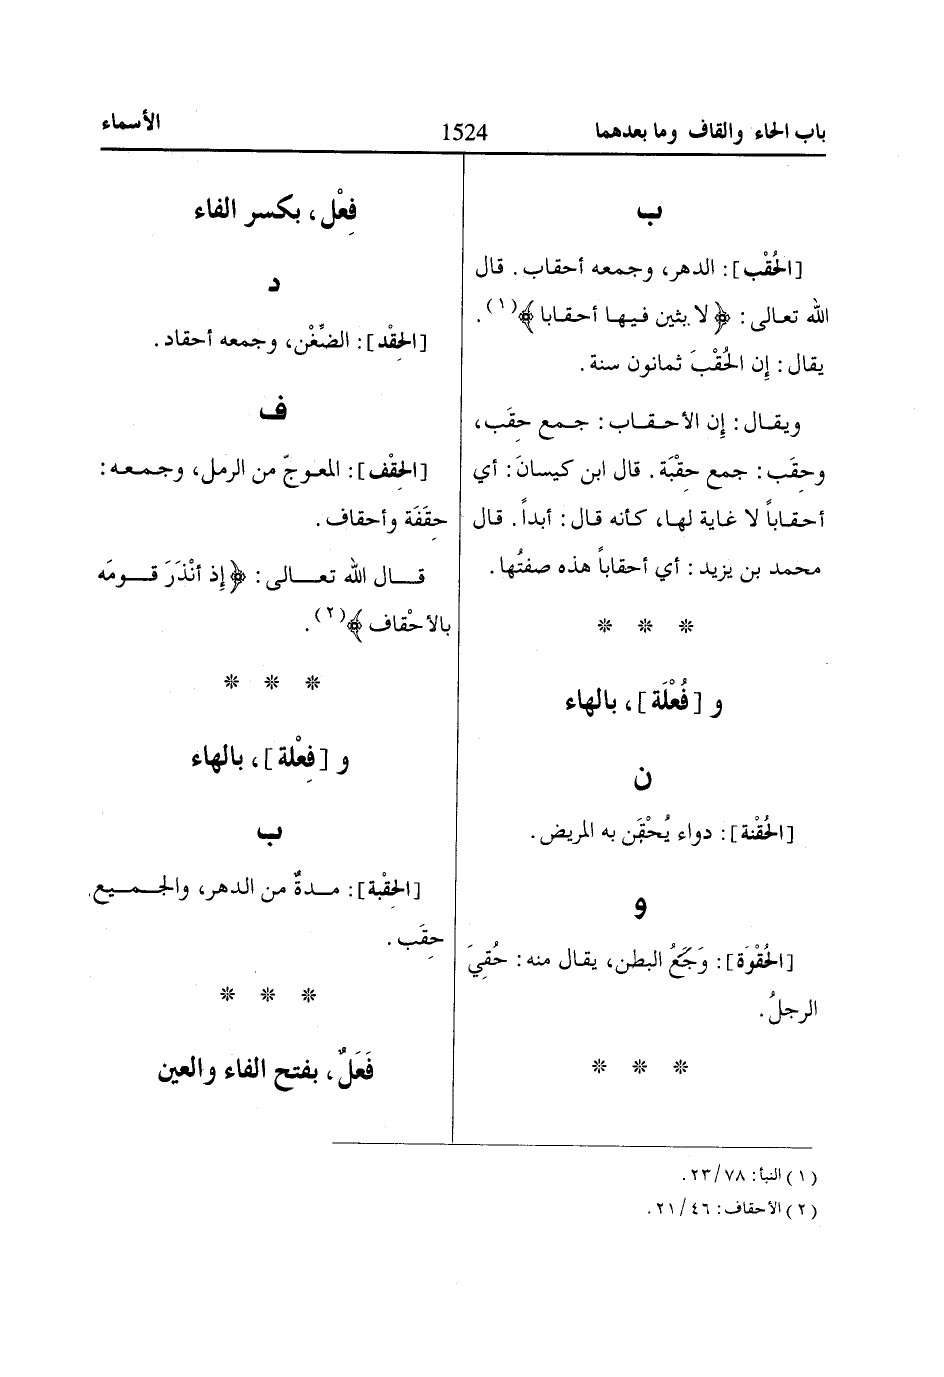 باب الحاء والقاف وما بعدهما 1524 الأسماء
ب
[الحُقْب]: الدهر، وجمعه أحقاب. قال
الله تعالى: ﴿لا بثين فيها أحقابا﴾(١).
يقال: إِن الحُقْبَ ثمانون سنة.
ويقال: إِن الأحقاب: جمع حِقَب،
وحِقَب: جمع حِقْبَة. قال ابن كيسان: أي
أحقاباً لا غاية لها، كأنه قال: أبداً. قال
محمد بن يزيد: أي أحقاباً هذه صفتُها.
* * *
و [فُعْلَة]، بالهاء
ن
[الحُقْنة]: دواء يُحْقَن به المريض.
و
[الحُقْوَة]: وَجَعُ البطن، يقال منه: حُقِيَ
الرجلُ.
* * *
فِعْل، بكسر الفاء
د
[الحِقْد]: الضِّغْن، وجمعه أحقاد.
ف
[الحِقْف]: المعوجّ من الرمل، وجمعه:
حِقَفَة وأحقاف.
قال الله تعالى: ﴿إِذ أنْذَرَ قومَه
بالأحْقاف﴾(٢).
* * *
و [فِعْلة]، بالهاء
ب
[الحِقْبة]: مدةٌ من الدهر، والجميع
حِقَب.
* * *
فَعَلٌ، بفتح الفاء والعين
(١) النبأ: ٢٣/٧٨.
(٢) الأحقاف: ٢١/٤٦.